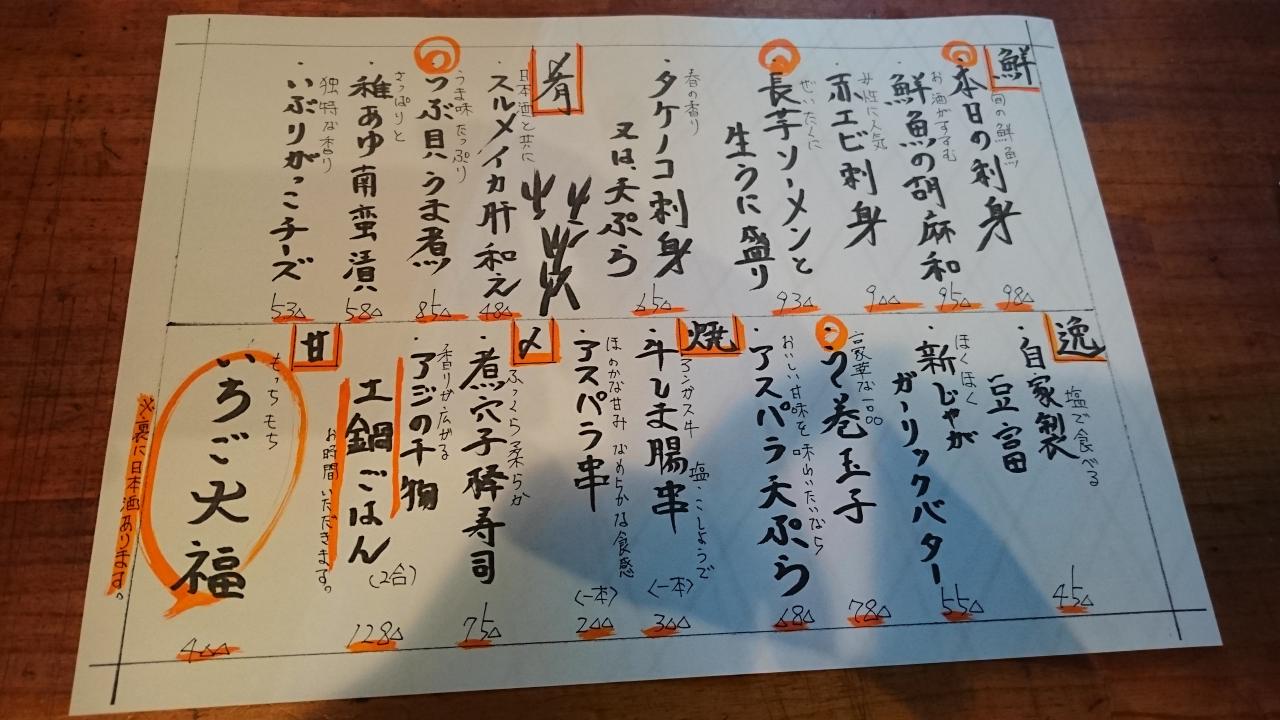 鮮
旬の鮮魚
・本日の刺身 98△
お酒がすすむ
・鮮魚の胡麻和 95△
女性に人気
・赤エビ刺身 9△△
ぜいたくに
・長芋ソーメンと
生うに盛り 93△
春の香り
・タケノコ刺身
又は、天ぷら 65△
肴
日本酒と共に
・スルメイカ肝和え 48△
うま味たっぷり
・つぶ貝うま煮 85△
さっぱりと
・稚あゆ南蛮漬 58△
独特な香り
・いぶりがっこチーズ 53△
逸
塩で食べる
・自家製
豆富 45△
ほくほく
・新じゃが
ガーリックバター 55△
豪華な一品
・う巻玉子 78△
おいしい甘味を味わいたいなら
・アスパラ天ぷら 68△
焼
アンガス牛 塩・こしょうで
・牛しま腸串 〈一本〉 3△△
ほのかな甘み なめらかな食感
・アスパラ串 〈一本〉 2△△
〆
ふっくら柔らか
・煮穴子棒寿司 75△
香りが広がる
・アジの干物
土鍋ごはん (2合) 128△
お時間いただきます。
甘
もっちもち
いちご大福 4△△
※裏に日本酒あります。